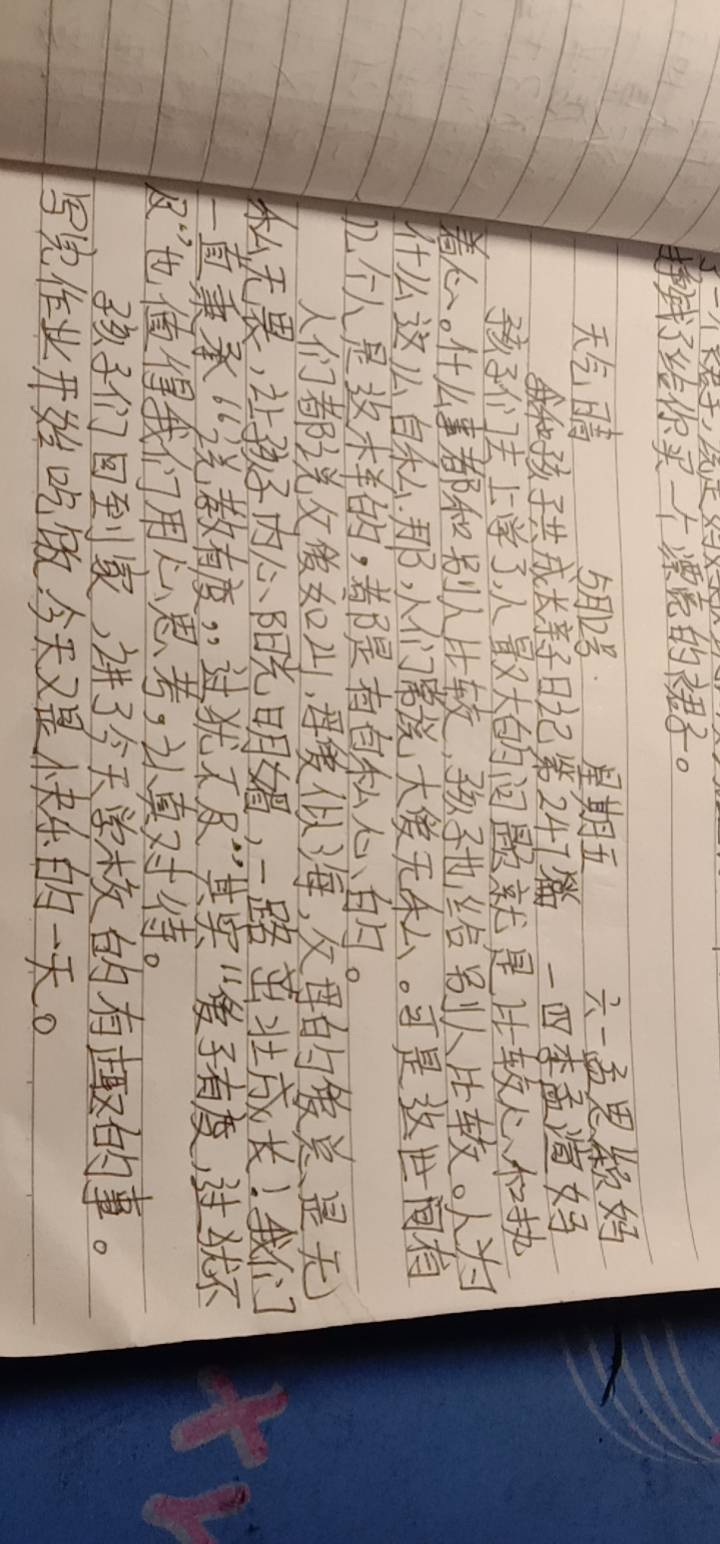 挣到了给你买一个漂亮的裙子。
天气晴 5月12号 星期五 六一孟思颖妈
我和孩子共成长亲子日记第247篇 一四李孟滢妈
孩子们去上学了,人最大的问题就是比较心和执
着心。什么事都和别人比较,孩子也给别人比较。人为
什么这么自私.那,人们常说大爱无私。可是这世间有
几个人是这样的,都是有自私心的。
人们都说父爱如山,母爱似海,父母的爱总是无
私无畏,让孩子内心阳光明媚,一路茁壮成长!我们
一直秉承“说教有度”过犹不及”其实“爱子有度,过犹不
及”也值得我们用心思考,认真对待。
孩子们回到家,讲了今天学校的有趣的事。
写完作业开始吃饭.今天又是快乐的一天。